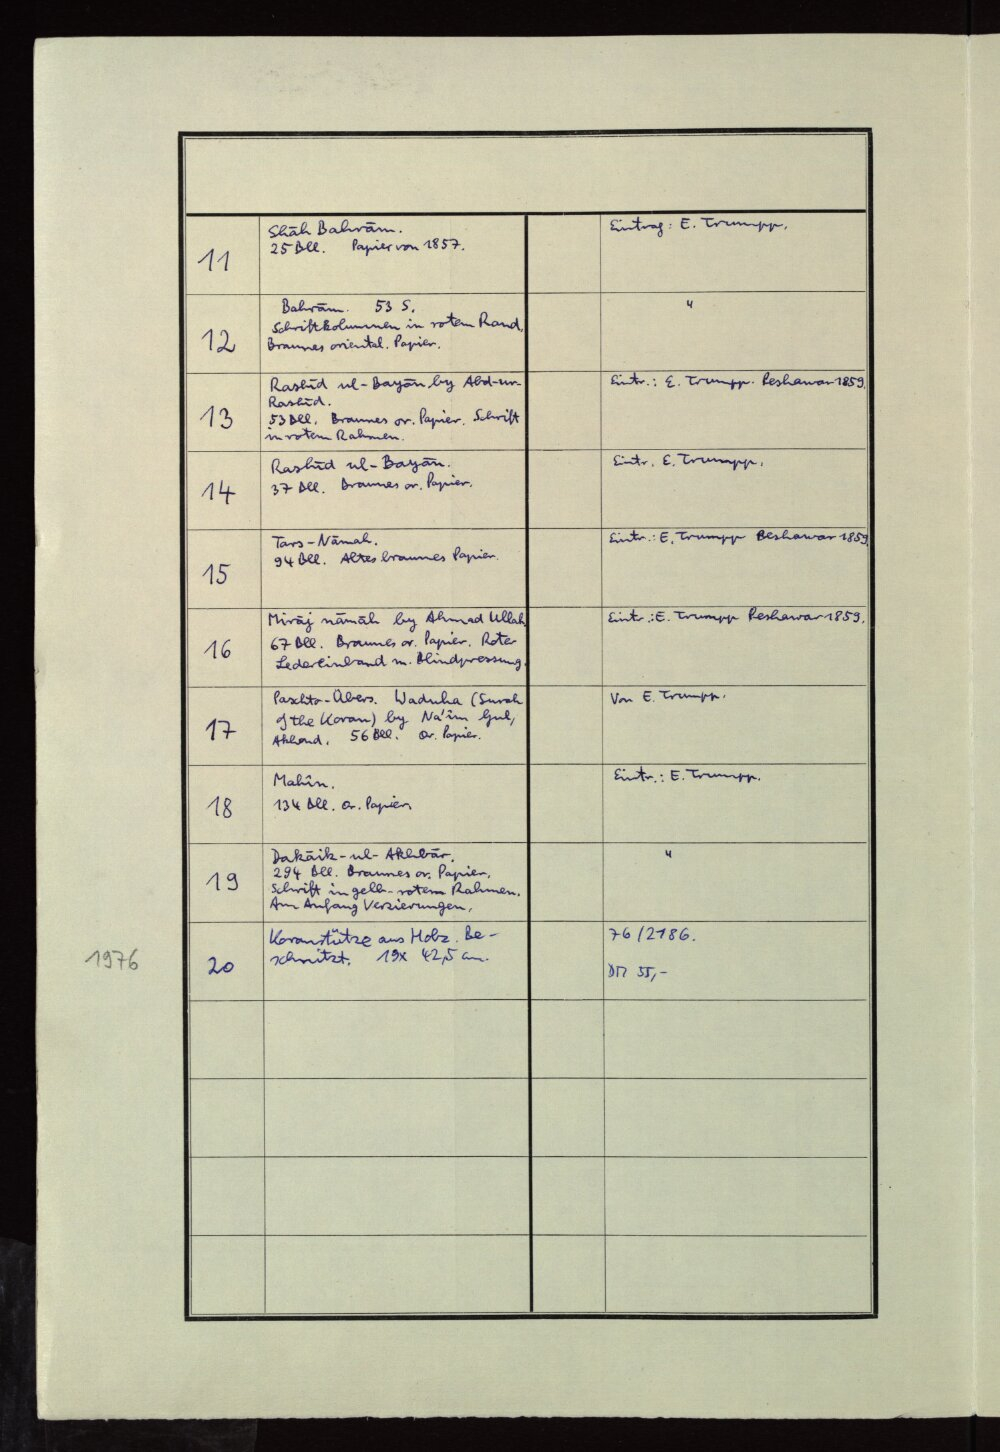 11
Shāh Bahrām.
25 Bll. Papier von 1857.
Eintrag: E. Trumpp.
12
Bahrām. 53 S.
Schriftkolumnen in rotem Rand.
Braunes oriental. Papier.
"
13
Rashīd ul-Bayān by Abd-ur-
Rashīd.
53 Bll. Braunes or. Papier. Schrift
in rotem Rahmen.
Eintr.: E. Trumpp. Peshawar 1859.
14
Rashīd ul-Bayān.
37 Bll. Braunes or. Papier.
Eintr. E. Trumpp.
15
Tars-Nāmah.
94 Bll. Altes braunes Papier.
Eintr.: E. Trumpp Peshawar 1859.
16
Mirāj nāmāh by Ahmad Ullah
67 Bll. Braunes or. Papier. Roter
Ledereinband m. Blindpressung.
Eintr.: E. Trumpp Peshawar 1859.
17
Paschto-Übers. Waduha (Surah
of the Koran) by Na'im Gul,
Akhond. 56 Bll. Or. Papier.
Von E. Trumpp.
18
Mahīn.
134 Bll. Or. Papier.
Eintr.: E. Trumpp.
19
Dakāik-ul-Akhbār.
294 Bll. Braunes or. Papier.
Schrift in gelb-rotem Rahmen.
Am Anfang Verzierungen.
"
1976
20
Koranstütze aus Holz. Be-
schnitzt. 19x 42,5 cm.
76/2186.
DM 55,-